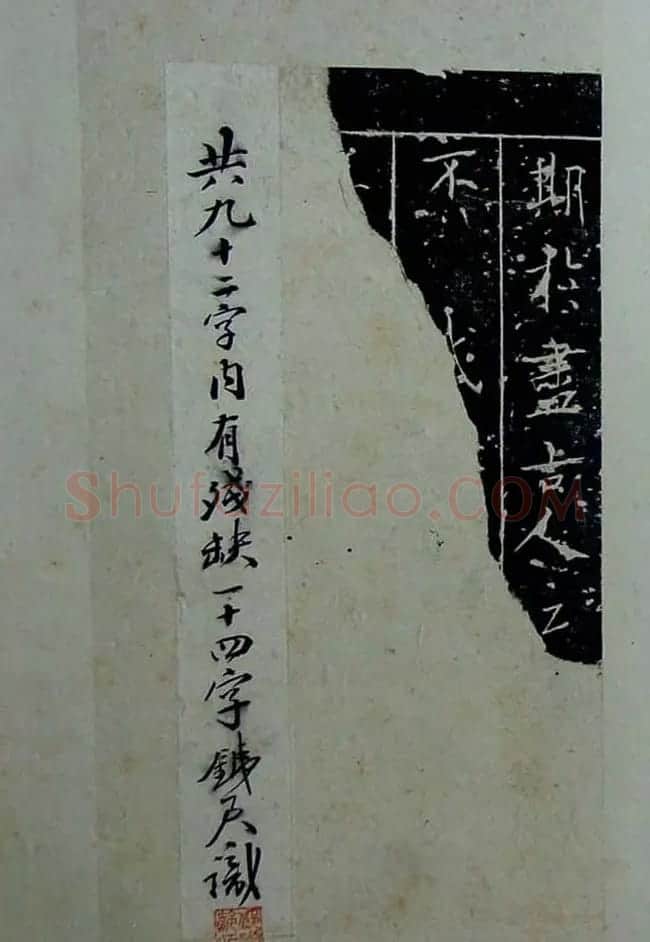 期於盡古人云
不
共九十二字內有殘缺一十四字鐵君識
Shufaziliao.COM